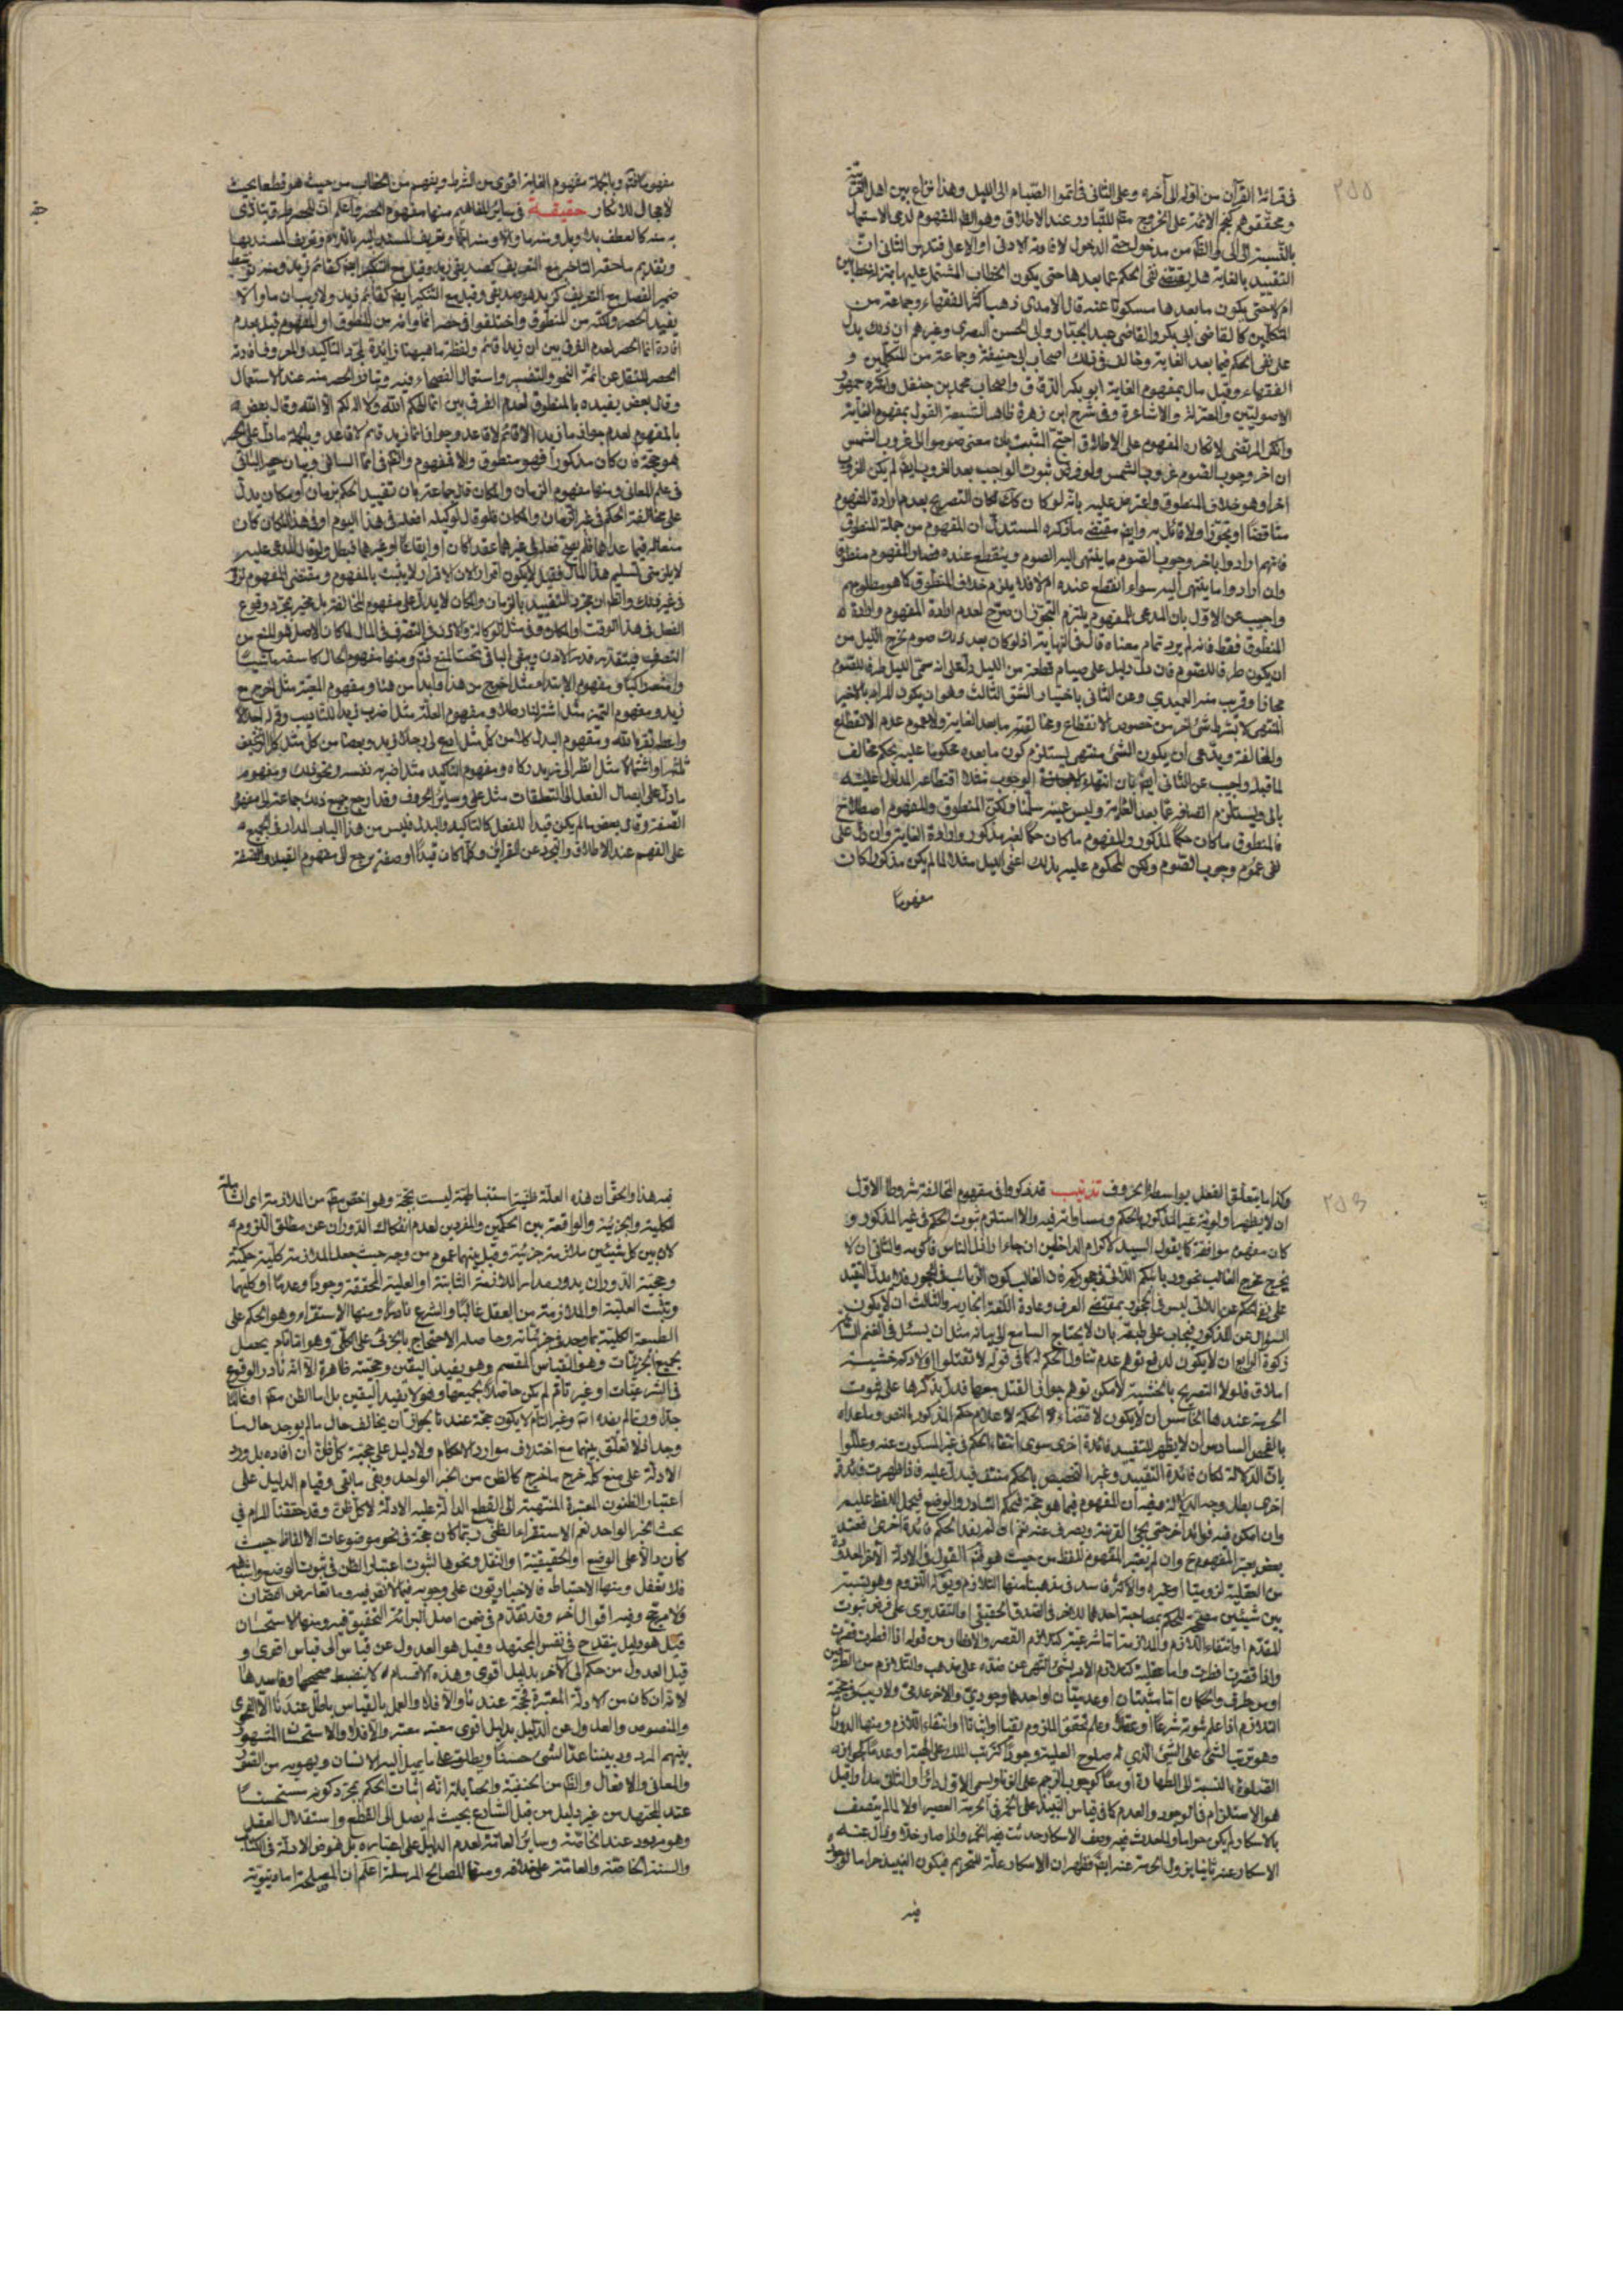 في قرائة القرآن من اوله الى آخره وعلى الثاني في اتموا الصّيام الى الليل وهذا نزاع بين اهل العربية
ومحققوهم كنجم الائمة على الخروج مط للتبادر عند الاطلاق وهو الظ المفهوم لدى الاستعمال
بالنسبة الى الى والظ من مدخول حتى الدخول لافادته الادنى او الاعلى فتدبر الثاني انّ
التقييد بالغاية هل يقتضي نفي الحكم عما بعدها حتى يكون الخطاب المشتمل عليها بمنزلة خطابين
ام لا حتى يكون ما بعدها مسكوتا عنه قال الامدي ذهب اكثر الفقهاء وجماعة من
المتكلمين كالقاضي ابي بكر والقاضي عبد الجبار وابي الحسن البصري وغيرهم ان ذلك يدل
على نفي الحكم فيما بعد الغاية وخالف في ذلك اصحاب ابي حنيفة وجماعة من المتكلمين و
الفقهاء وقيل مال بمفهوم الغاية ابو بكر الدقاق واصحاب محمد بن حنفل وانكره جمهور
الاصوليين والمعتزلة والاشاعرة وفي شرح ابن زهرة ظاهر الشيعة القول بمفهوم الغاية
وانكر المرتضى لانكاره المفهوم على الاطلاق احتجّ المثبت بان معنى صوموا الى غروب الشمس
ان اخر وجوب الصوم غروب الشمس ولو فرض ثبوت الواجب بعد الغروب ايض لم يكن الغروب
اخرا وهو خلاف المنطوق واعترض عليه بانه لو كان كك لكان التصريح بعدم ارادة المفهوم
متناقضا او تجوّزا ولا قائل به وايض مقتضى ما ذكره المستدل ان المفهوم من جملة المنطوق
فانهم ارادوا باخر وجوب الصوم ما ينتهي اليه الصوم وينقطع عنده فصار المفهوم منطوقا
وان ارادوا ما ينتهي اليه سواء انقطع عنده ام لا فلا يلزم خلاف المنطوق كما هو مطلوبهم
واجيب عن الاول بان المدعي للمفهوم يلتزم التجوز ان صرّح لعدم ارادة المفهوم وارادة
المنطوق فقط فانه لم يرد تمام معناه قال في النهاية اذ لو كان بعد ذلك صوم لخرج الليل من
ان يكون طرفا للصوم فان دلّ دليل على صيام قطعة من الليل دلّ على انه سمّى الليل طرفا للصوم
مجازا وقريب منه العميدي وعن الثاني باختيار الشق الثالث وهو ان يكون المراد بالاخير
المنتهى لا بشرط شيء اخر من خصوص الانقطاع ومخالفته ما بعد الغاية ولا عموم عدم الانقطاع
والمخالفة ويدّعي ان يكون الشيء منتهى يستلزم كون ما بعده محكوما عليه بحكم مخالف
لما قبله واجيب عن الثاني ايض بان انتهاء الوجوب مثلا اقتطاعه المدلول عليه
بالى ويستلزم اتصافه عما بعد الغاية وليس عينه سلّمنا ولكن المنطوق والمفهوم اصطلاح
فالمنطوق ما كان حكما لمذكور والمفهوم ما كان حكما لغير مذكور وارادة الغاية وان دلّ على
نفي عموم وجوب الصّوم ولكن المحكوم عليه بذلك اعني الليل مثلا لما لم يكن مذكورا كان
مفهوما
مفهوما فتم وبالجملة مفهوم الغاية اقوى من الشرط ويفهم من الخطاب من حيث هو قطعا بحيث
لا مجال للانكار حقيقة في سائر المفاهيم منها مفهوم الحصر واعلم انّ للحصر طرق يتأدى
به منه كالعطف بلا وبل ومنه ما والا ومنه انما وتعريف المسند اليه باللام وتعريف المسند بها
وتقديم ما حقه التاخير مع التعريف كصديقي زيد وقيل مع التنكير ايض كقائم زيد ومنه توسط
ضمير الفصل مع التعريف كزيد هو صديقي وقيل مع التنكير ايض كقائم زيد ولا ريب ان ما والا
يفيد الحصر ولكنه من المنطوق واختلفوا في حصر انما وانه من المنطوق او المفهوم قيل بعدم
افادة انما الحصر لعدم الفرق بين ان زيدا قائم ولفظة ما هيهنا زائدة لمجرّد التاكيد والمعروف افادته
الحصر للنقل عن ائمة النحو والتفسير واستعمال الفصحاء فيه وتبادر الحصر منه عند الاستعمال
وقال بعض يفيده بالمنطوق لعدم الفرق بين انما الهكم الله ولا اله لكم الا الله وقال بعض
بالمفهوم لعدم جواز ما زيد الا قائم لا قاعد وجواز انما زيد قائم لا قاعد وبالجملة ما دلّ على الحصر
هو حجّة فان كان مذكورا فهو منطوق والا فمفهوم والكلام في انما السالف وبيان حصر الباقي
في علم المعاني ومنها مفهوم الزمان والمكان قال جماعة بان تقييد الحكم بزمان او مكان يدلّ
على مخالفة الحكم في غير الزمان والمكان فلو قال لوكيله افعله في هذا اليوم او في هذا المكان كان
منعا له فيما عداهما فلم يصح فعله في غيرهما عقدا كان او ايقاعا او غيرهما فيبطل ولو قال للمدعى عليه
لا يلزمني تسليم هذا المال فقيل لا يكون اقرارا لان الاقرار لا يثبت بالمفهوم ومقتضى المفهوم لزوم
في غير ذلك والظ ان مجرّد التقييد بالزمان والمكان لا يدلّ على مفهوم المخالفة بل مخبر بمجرّد وقوع
الفعل في هذا الوقت او المكان وفي مثل الوكالة والاذن في التصرف في المال لما كان الاصل هو المنع من
التصرف فيتقدّر قدر الاذن ويبقى الباقي تحت المنع فتم ومنها مفهوم الحال
زيد ومفهوم التميز مثل اشتر لنا رطلا ومفهوم العلة مثل اضرب زيدا للتاديب
ما دلّ على ايصال الفعل الى المتعلقات مثل على وسائر الحروف وقد ارجع جميع ذلك جماعة الى مفهوم
الصّفة وقال بعض ما لم يكن قيدا للفعل كالتاكيد والبدل فليس من هذا الباب المدار في الجميع
على الفهم عند الاطلاق والتجرد عن القرائن وكلما كان قيدا او صفة يرجع الى مفهوم القيد والصفة
وكذا ما يتعلق بالفعل بواسطة الحروف تذنيب قد ذكروا في مفهوم المخالفة شروطا الاول
ان لا يظهر اولوية غير المذكور بالحكم ومساواته فيه والا استلزم ثبوت الحكم في غير المذكور و
كان مفهوم موافقة كما يقول السيد لاكرام الداخلين ان جاءا راذل الناس فاكرمه والثاني ان لا
يخرج مخرج الغالب نحو وربائبكم اللاتي في حجوركم فان الغالب كون الربائب في الحجور فلا يدل التقييد
على نفي الحكم عن اللاتي ليس في الحجور بمقتضى العرف وعادة اللغة الجارية والثالث ان لا يكون
السؤال عن المذكور فيجاب على طبقه بان لا يحتاج السامع الى بيانه مثل ان يسئل في الغنم السائمة
زكوة الرابع ان لا يكون لدفع توهم عدم تناول الحكم له كما في قوله لا تقتلوا اولادكم خشية
املاق فلولا التصريح بالخشية لامكن توهم جواز القتل معها فدل بذكرها على ثبوت
الحرمة عندها الخامس ان لا يكون لاقتضاء الحكمة لاعلام حكم المذكور بالنص وما عداه
بالفحص السادس ان لا يظهر للتقييد فائدة اخرى سوى انتفاء الحكم في غير المسكوت عنه وعللوا
بانّ الدلالة لمكان فائدة التقييد وغير التخصيص بالحكم منتف فيدل عليه فاذا ظهرت فائدة
اخرى بطل وجه الدلالة وفيه ان المفهوم فيما هو حجة بحكم التبادر والوضع فيحمل اللفظ عليه
وان امكن فيه فوائد اخر حتى يجئ القرينة ويصرف عنه نعم اذا لم يفد الحكم فائدة اخرى فعند
بعض يعتبر المفهوم وان لم يعتبر المفهوم للفظ من حيث هو
بين شيئين مصحح للحكم بمصاحبة احدهما للاخر في الصدق الحقيقي او التقديري على فرض ثبوت
المقدم او انتفاء اللازم والملازمة اما شرعية كتلازم القصر والافطار من قوله اذا افطرت قصرت
واذا قصرت افطرت واما عقلية كتلازم الامر بشئ والنهي عن ضدّه على مذهب والتلازم من الطرفين
او من طرف والحكمان اما مثبتان او عدميان او احدهما وجودي والاخر عدمي ولا ريب في حجية
التلازم اذا علم ثبوته شرعا او عقلا وعلم تحقق الملزوم نفيا او اثباتا او انتفاء اللازم ومنها الدوران
وهو ترتب الشئ على الشئ الذي له صلوح العلية وجودا
الصلوة بالنسبة الى الطهارة او معا كوجوب الرجم على الزنا ويسمى الاول دائرا والثاني مدارا وقيل
هو الاستلزام في الوجود والعدم كما في قياس النبيذ على الخمر في الحرمة العصير اولا لما لم يتصف
بالاسكار لم يكن حراما ولما حدث فيه وصف الاسكار حدثت فيه الحرمة واذا صار خلّا وزال عنه
الاسكار عنه ثانيا يزول الحرمة عنه ايضا فظهر ان الاسكار علة للتحريم فيكون النبيذ حراما لوجوده
فيه
فيه هذا والحق ان هذه العلّة ظنية استنباطية ليست بحجة وهو اخص مط من الملازمة
الكلية والجزئية والواقعة بين الحكمين والمفردين لعدم انفكاك الدوران عن مطلق اللزوم
لان بين كل شيئين ملازمة جزئية وقيل بينهما عموم من وجه حيث جعل الملازمة كلية حكمية
وحجية الدوران يدور مدار الملازمة الثابتة او العلية المحققة وجودا وعدما او كليهما
وتثبت العلية او الملازمة من العقل غالبا والشرع نادرا ومنها الاستقراء وهو الحكم على
الطبيعة الكلية بما وجد في جزئياته وحاصله الاحتجاج بالجزئي على الكلّي وهو اما تام يحصل
بجميع الجزئيات وهو القياس المقسم وهو يفيد اليقين وحجيته ظاهرة الا انه نادر الوقوع
في الشرعيات او غير تام لم يكن حاصلا بجميعها وهو لا يفيد اليقين بل اما الظن مط او غالبا
جدّا وربما لم يفده اذ وغير التام لا يكون حجة عندنا بجواز ان يخالف حال ما لم يوجد حال ما
وجد اذ لا تعلق بينهما مع اختلاف موارد الاحكام ولا دليل على حجية كل ظن ان افاده بل ورد
الادلة على منع كله خرج ما خرج كالظن من الخبر الواحد وبقي ما بقي وقيام الدليل على
اعتبار الظنون المعتبرة المنتهية الى القطع الدالة عليه الادلة لا كل ظن وقد حققنا المرام في
بحث الخبر الواحد نعم الاستقراء الظني ربما كان حجة في نحو موضوعات الالفاظ حيث
كان دالا على الوضع او الحقيقية او النقل ونحوها لثبوت اعتبار الظن في ثبوت الوضع
فلا تغفل ومنها الاحتياط فالاخباريون على وجوبه فيما لا نص فيه وما تعارض النصان
ولا مرجح وفيه اقوال اخر وقد تقدّم في ضمن اصل البرائة التحقيق فيه ومنها الاستحسان
قيل هو دليل ينقدح في نفس المجتهد وقيل هو العدول عن قياس الى قياس اقوى و
قيل العدول من حكم الى الآخر بدليل اقوى وهذه الاقسام لا ينضبط صحيحها وفاسدها
لانه ان كان من الادلة المعتبرة فحجة عندنا والا فلا والعمل بالقياس باطل عندنا الا الفحوى
والمنصوص والعدول عن الدليل بدليل اقوى معتبر والا فلا والاستحسان المشهور
بينهم المردود بيننا عدّ الشئ حسنا ويطلق على ما يميل اليه الانسان ويهويه من الصور
والمعاني والافعال والظ من الحنفية والحنابلة انه اثبات الحكم بمجرد كونه مستحسنا
عند المجتهد من غير دليل من قبل الشارع بحيث لم يصل الى القطع واستقلال العقل
وهو مردود عند الخاصّة وسائر العامّة لعدم الدليل على اعتباره بل نهوض الادلة في الكتاب
والسنة الخاصّة والعامّة على خلافه ومنها المصالح المرسلة اعلم ان المصلحة اما دنيوية